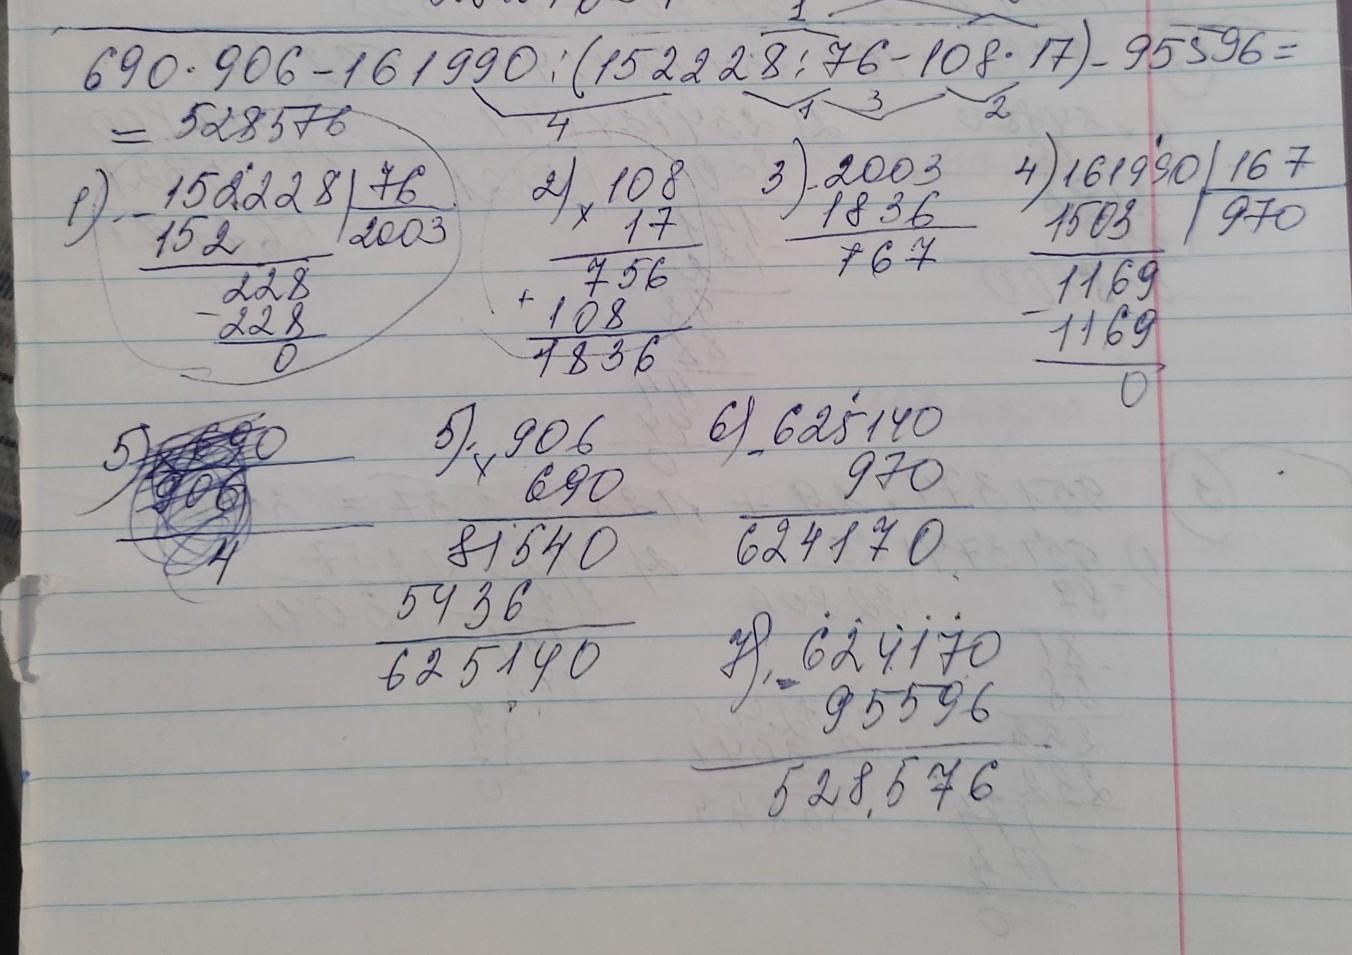 690·906-161990:(152228:76-108·17)-95596=
1 3 2
4
=528576
1) -152228|76
152 2003
228
-228
0
2) x108
17
756
+
108
1836
3) -2003
1836
167
4) 161990|167
1503 970
1169
-1169
0
5) 690
906
4
5) x906
690
81540
5436
625140
6) -625140
970
624170
7) -624170
95596
528576